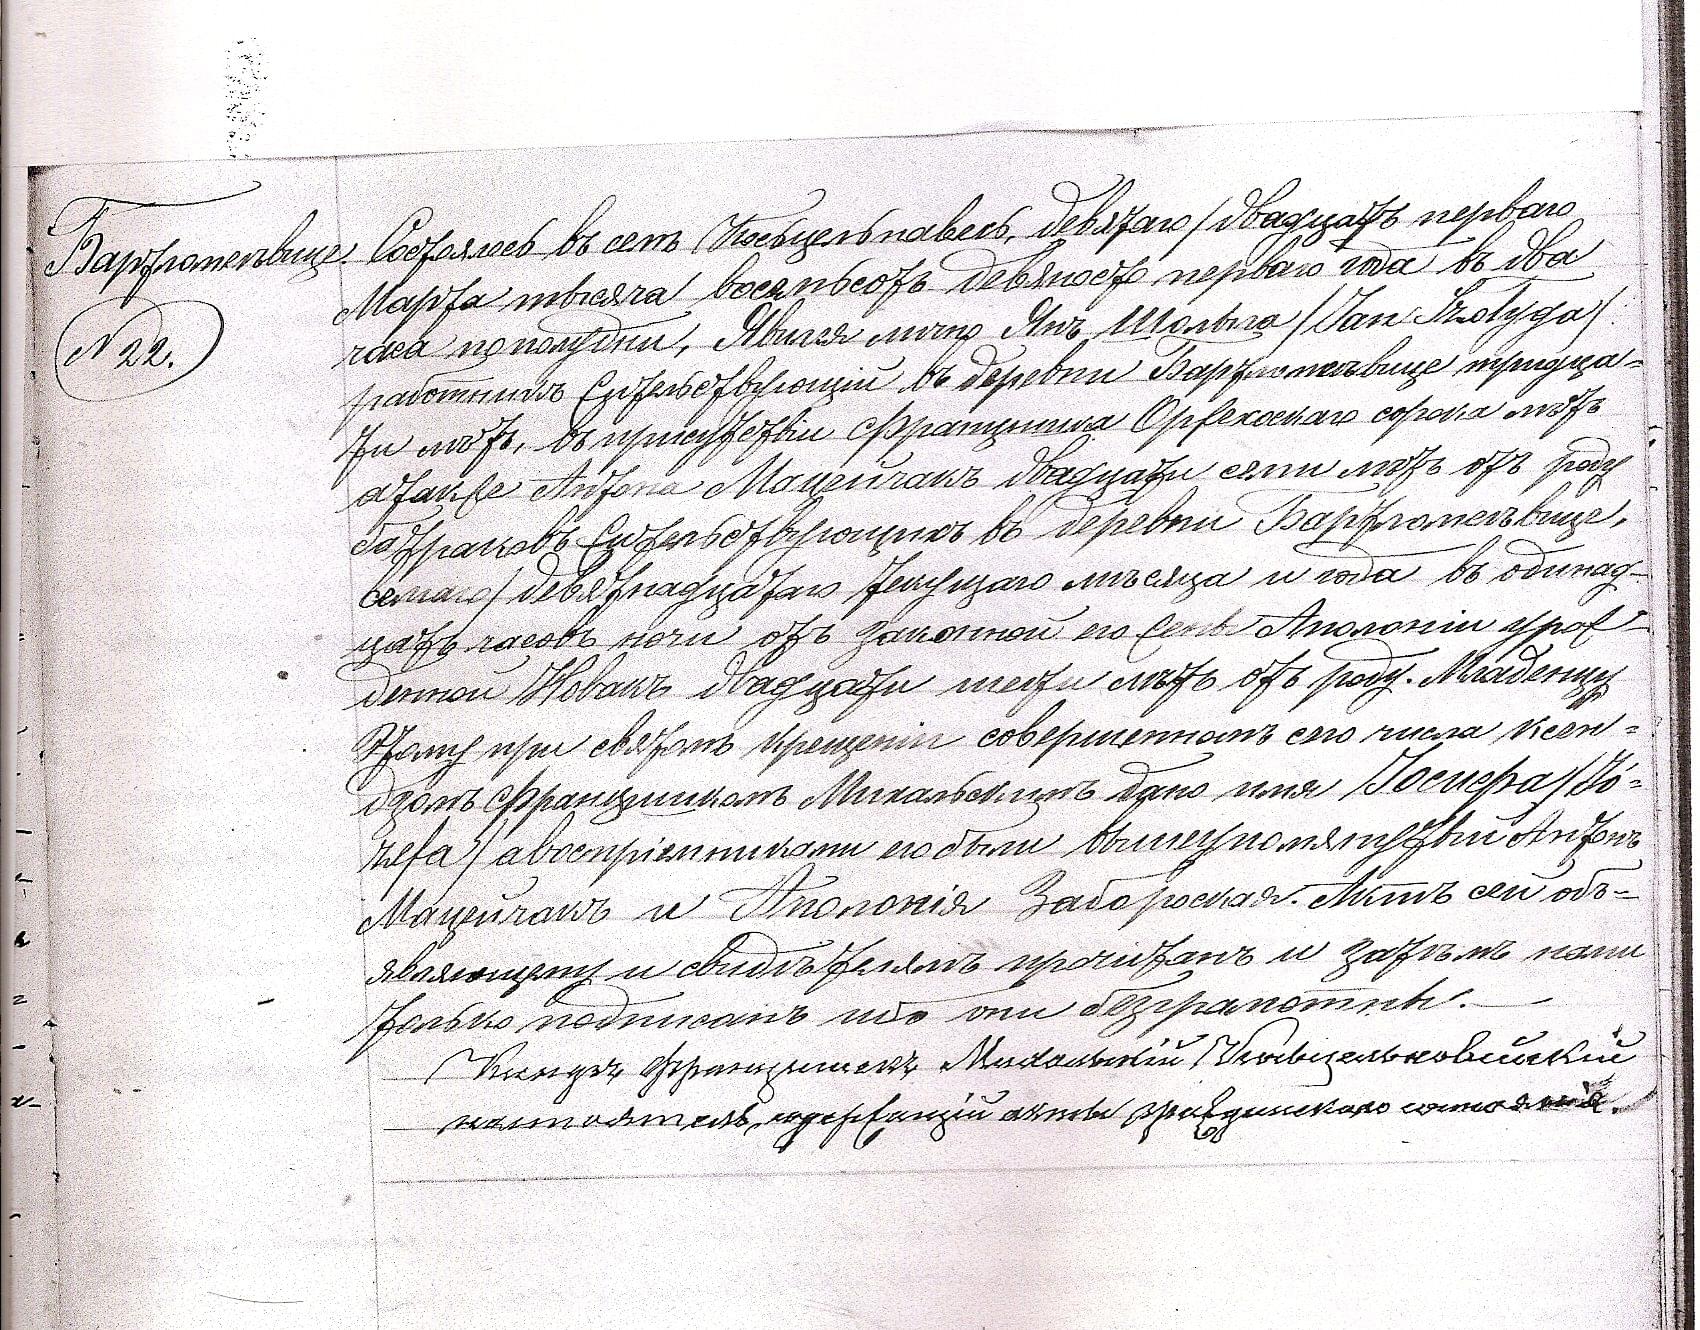 Бартломеёвице
№ 22.
Состоялось въ селѣ Косцельнавесь, девятаго / двадцать перваго
Марта тысяча восемьсотъ девяносто перваго года въ два
часа пополудни, Явился лично Янъ Шолыга / Jan Szołyga /
работникъ жительствующій въ деревни Бартломеѣвице тридца=
ти лѣтъ, въ присутствіи Францишка Оржехоскаго сорока лѣтъ
а также Антона Мацейчакъ двадцати семи лѣтъ отъ роду
батраковъ жительствующихъ въ деревни Бартломеѣвице,
седмаго / девятнадцатаго текущаго мѣсяца и года въ одинад-
цать часовъ ночи отъ законной его жены Аполоніи урож-
денной Новакъ двадцати шести лѣтъ отъ роду. Младенцу
Этому при святомъ крещеніи совершенномъ сего числа ксен=
дзомъ Францишкомъ Михальскимъ дано имя Іосифа / Jó=
zefa / а воспріемниками его были вышеупомянутый Антонъ
Мацейчакъ и Аполонія Забороская. Актъ сей объ-
являющему и свидѣтелямъ прочитанъ и затѣмъ нами
только подписанъ ибо они безграмотны.
Ксендзъ Францишекъ Михальскій Косцельновейскій
настоятель, содержащій акты гражданскаго состоянія.